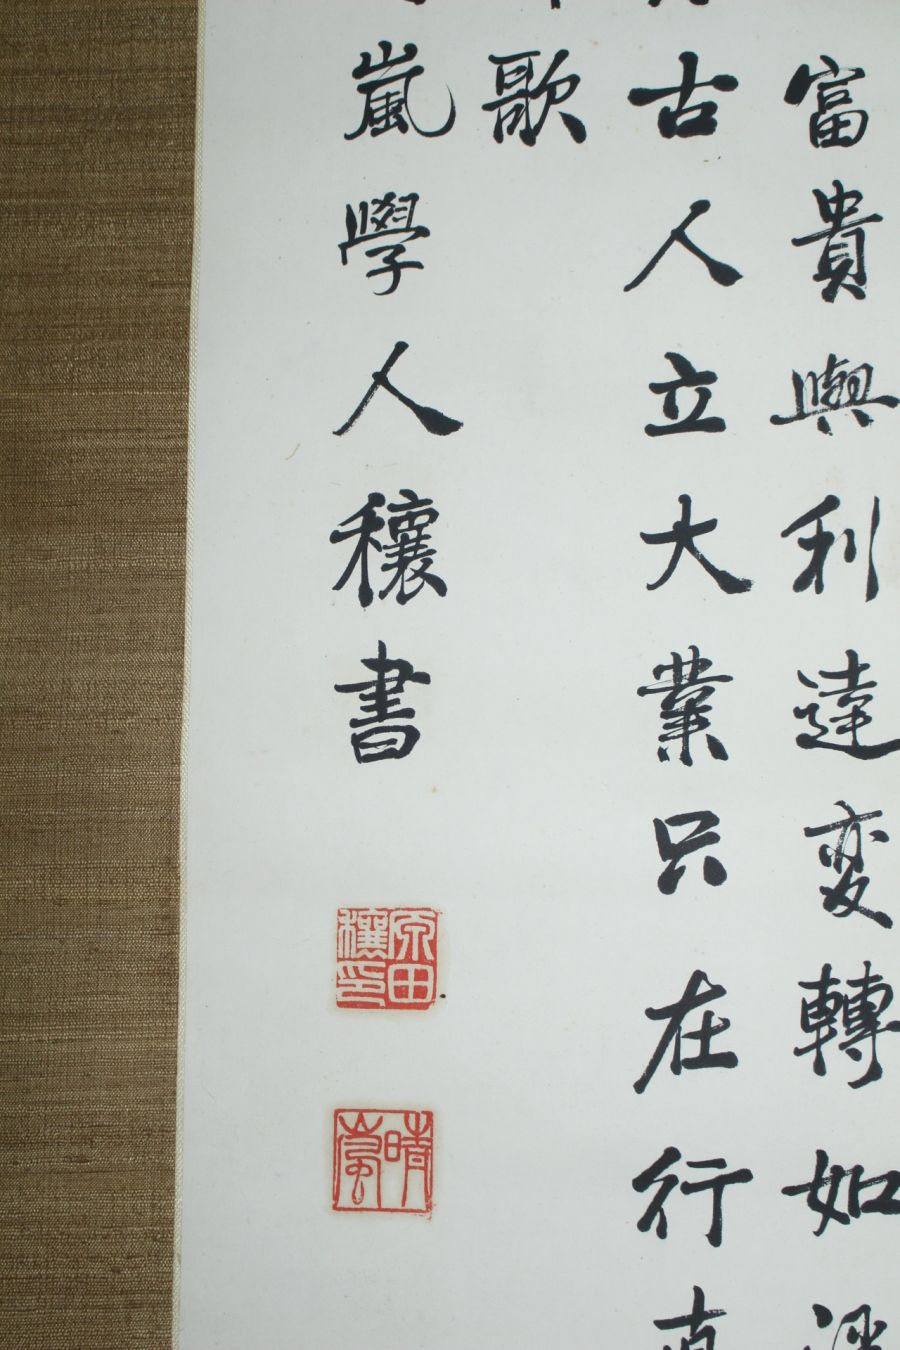 富貴與利達変轉如
古人立大業只在行
歌
嵐學人穰書
原田穰印
晴嵐